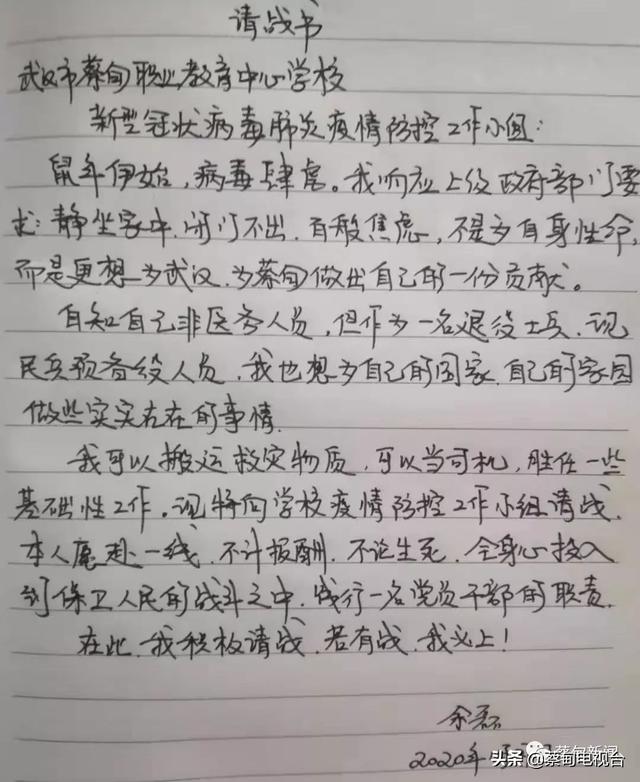 请战书
武汉市蔡甸职业教育中心学校
新型冠状病毒肺炎疫情防控工作小组：
鼠年伊始，病毒肆虐。我响应上级政府部门要
求：静坐家中，闭门不出，百般焦虑，不是为自身性命，
而是更想为武汉，为蔡甸做出自己的一份贡献。
自知自己非医务人员，但作为一名退役士兵，现
民兵预备役人员，我也想为自己的国家，自己的家园
做些实实在在的事情。
我可以搬运救灾物质，可以当司机，胜任一些
基础性工作。现特向学校疫情防控工作小组请战，
本人愿赴一线，不计报酬，不论生死，全身心投入
到保卫人民的战斗之中，践行一名党员干部的职责。
在此，我积极请战，若有战，我必上！
余磊
2020年
蔡甸新闻
头条@蔡甸电视台